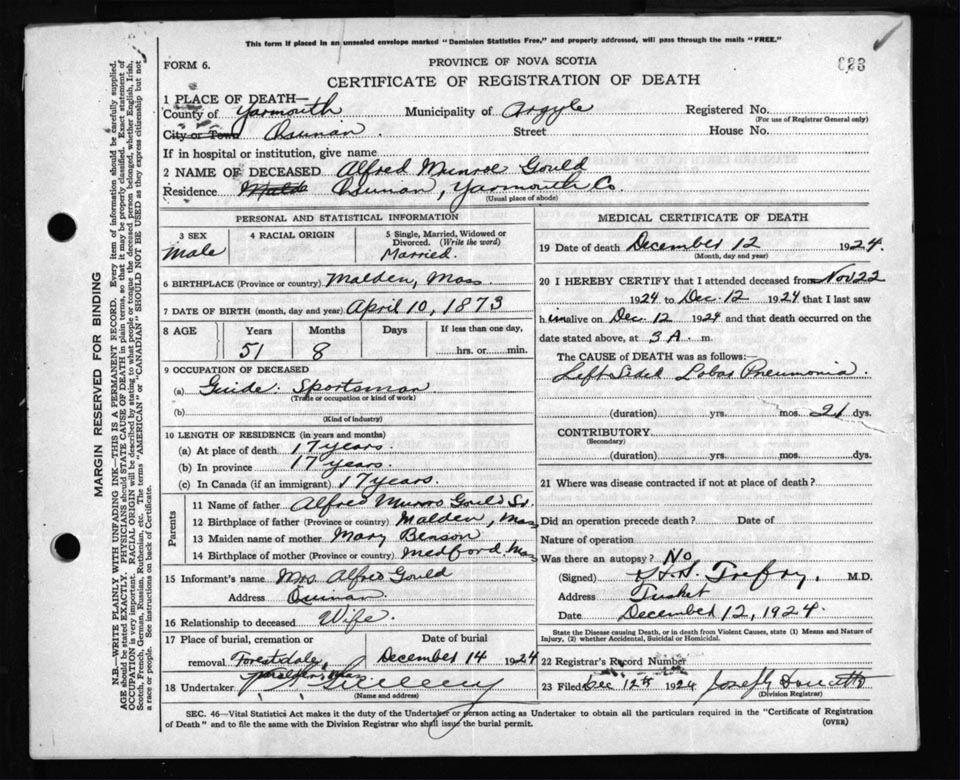 This form if placed in an unsealed envelope marked "Dominion Statistics Free," and properly addressed, will pass through the mails "FREE."
FORM 6.
PROVINCE OF NOVA SCOTIA
CERTIFICATE OF REGISTRATION OF DEATH
1 PLACE OF DEATH—
County of Yarmouth Municipality of Argyle Registered No.
(For use of Registrar General only)
City or Town Quinan. Street House No.
If in hospital or institution, give name
2 NAME OF DECEASED Alfred Munroe Gould
Residence Quinan, Yarmouth Co.
(Usual place of abode)
PERSONAL AND STATISTICAL INFORMATION
3 SEX Male
4 RACIAL ORIGIN
5 Single, Married, Widowed or Divorced. (Write the word) Married.
6 BIRTHPLACE (Province or country) Malden, Mass.
7 DATE OF BIRTH (month, day and year) April 10, 1873
8 AGE Years Months Days If less than one day,
51 8 hrs. or min.
9 OCCUPATION OF DECEASED
(a) Guide: Sportsman
(Trade or occupation or kind of work)
(b)
(Kind of industry)
10 LENGTH OF RESIDENCE (in years and months)
(a) At place of death 17 years.
(b) In province 17 years.
(c) In Canada (if an immigrant) 17 years.
Parents
11 Name of father Alfred Munro Gould Sr.
12 Birthplace of father (Province or country) Malden, Mass
13 Maiden name of mother Mary Benson
14 Birthplace of mother (Province or country) Medford Mass
15 Informant's name Mrs Alfred Gould
Address Quinan
16 Relationship to deceased Wife.
17 Place of burial, cremation or Date of burial
removal Forestdale December 14 1924
18 Undertaker
(Name and address)
MEDICAL CERTIFICATE OF DEATH
19 Date of death December 12 1924.
(Month, day and year)
20 I HEREBY CERTIFY that I attended deceased from Nov 22
1924 to Dec. 12 1924 that I last saw
h im alive on Dec. 12 1924 and that death occurred on the
date stated above, at 3 A. m.
The CAUSE of DEATH was as follows:
Left Sided Lobar Pneumonia.
(duration) yrs. mos. 21 dys.
CONTRIBUTORY
(Secondary)
(duration) yrs. mos. dys.
21 Where was disease contracted if not at place of death?
Did an operation precede death? Date of
Nature of operation
Was there an autopsy? No
(Signed) Trefry, M.D.
Address Tusket
Date December 12, 1924.
State the Disease causing Death, or in death from Violent Causes, state (1) Means and Nature of
Injury, (2) whether Accidental, Suicidal or Homicidal.
22 Registrar's Record Number
23 Filed Dec 12th 1924 Joseph Doucette
(Division Registrar)
SEC. 46—Vital Statistics Act makes it the duty of the Undertaker or person acting as Undertaker to obtain all the particulars required in the "Certificate of Registration
of Death" and to file the same with the Division Registrar who shall issue the burial permit. (OVER)
MARGIN RESERVED FOR BINDING
N.B.—WRITE PLAINLY WITH UNFADING INK—THIS IS A PERMANENT RECORD. Every item of information should be carefully supplied.
AGE should be stated EXACTLY. PHYSICIANS should STATE CAUSE OF DEATH in plain terms, so that it may be properly classified. Exact statement of
OCCUPATION is very important. RACIAL ORIGIN will be described by stating to what people or tongue the deceased person belonged, whether English, Irish,
Scotch, French, German, Russian, Ruthenian, etc. The terms "AMERICAN" or "CANADIAN" SHOULD NOT BE USED as they express citizenship but not
a race or people. See instructions on back of Certificate.